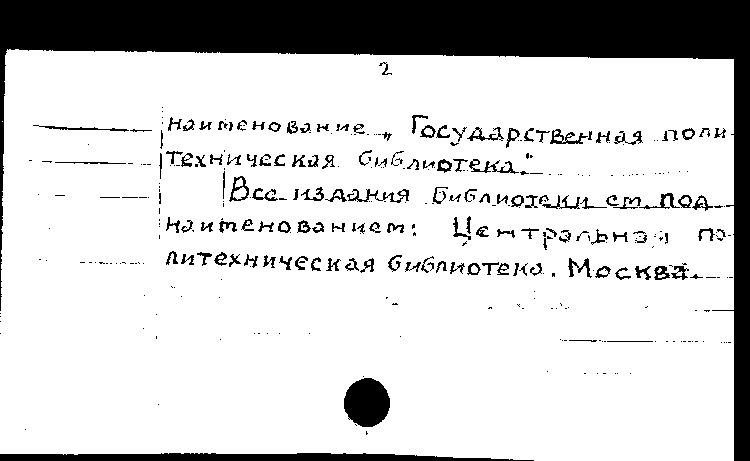 2
наименование „Государственная поли-
техническая библиотека."
Все издания Библиотеки см. под
наименованием: Центральная по-
литехническая библиотека. Москва.